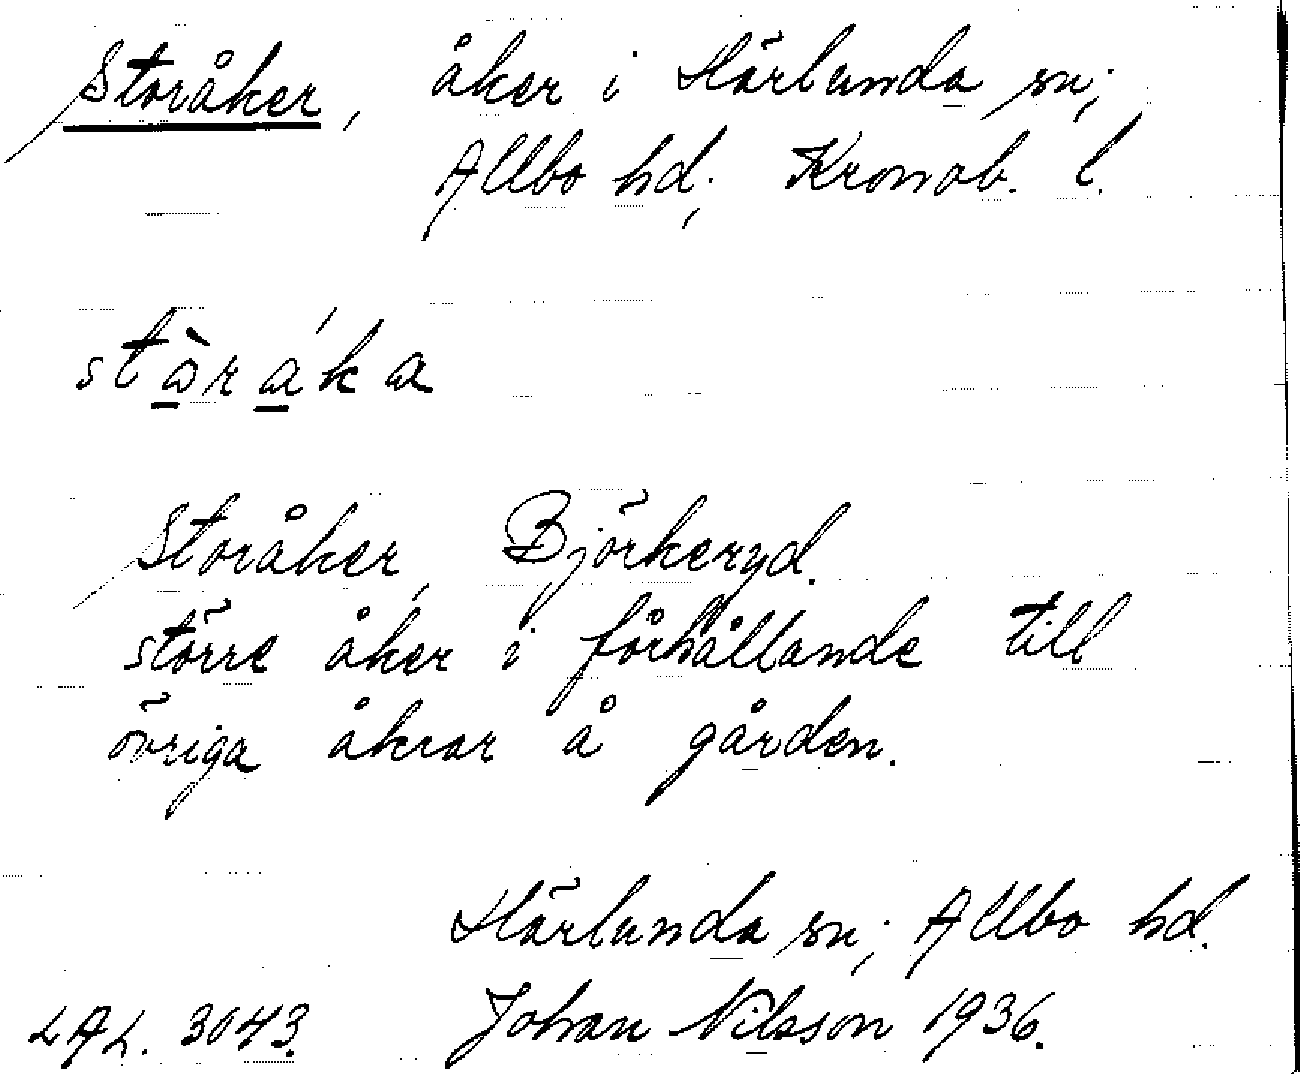 Storåker, åker i Härlunda sn;
Allbo hd; Kronob. l.
stòráka
Storåker, Björkeryd.
större åker i förhållande till
övriga åkrar å gården.
Härlunda sn; Allbo hd.
LAL. 3043. Johan Nilsson 1936.